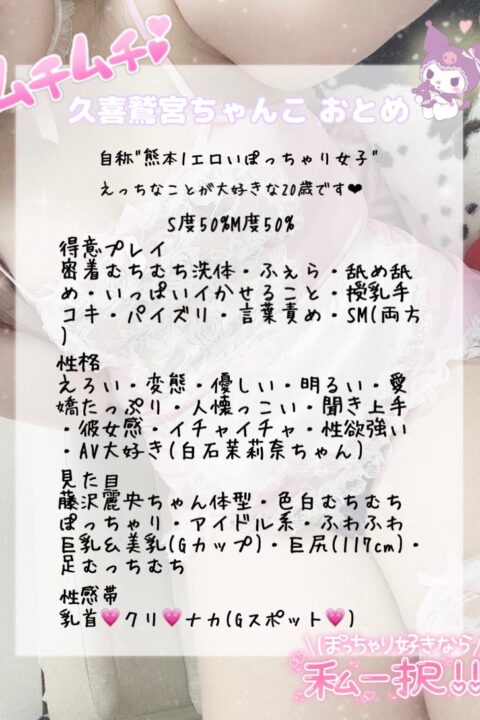 ムチムチ
久喜鷲宮ちゃんこ おとめ
自称"熊本1エロいぽっちゃり女子"
えっちなことが大好きな20歳です❤
S度50%M度50%
得意プレイ
密着むちむち洗体・ふぇら・舐め舐
め・いっぱいイかせること・授乳手
コキ・パイズリ・言葉責め・SM(両方
)
性格
えろい・変態・優しい・明るい・愛
嬌たっぷり・人懐っこい・聞き上手
・彼女感・イチャイチャ・性欲強い
・AV大好き(白石茉莉奈ちゃん)
見た目
藤沢麗央ちゃん体型・色白むちむち
ぽっちゃり・アイドル系・ふわふわ
巨乳&美乳(Gカップ)・巨尻(117cm)・
足むっちむち
性感帯
乳首💗クリ💗ナカ(Gスポット💗)
\ぽっちゃり好きなら/
私一択!!